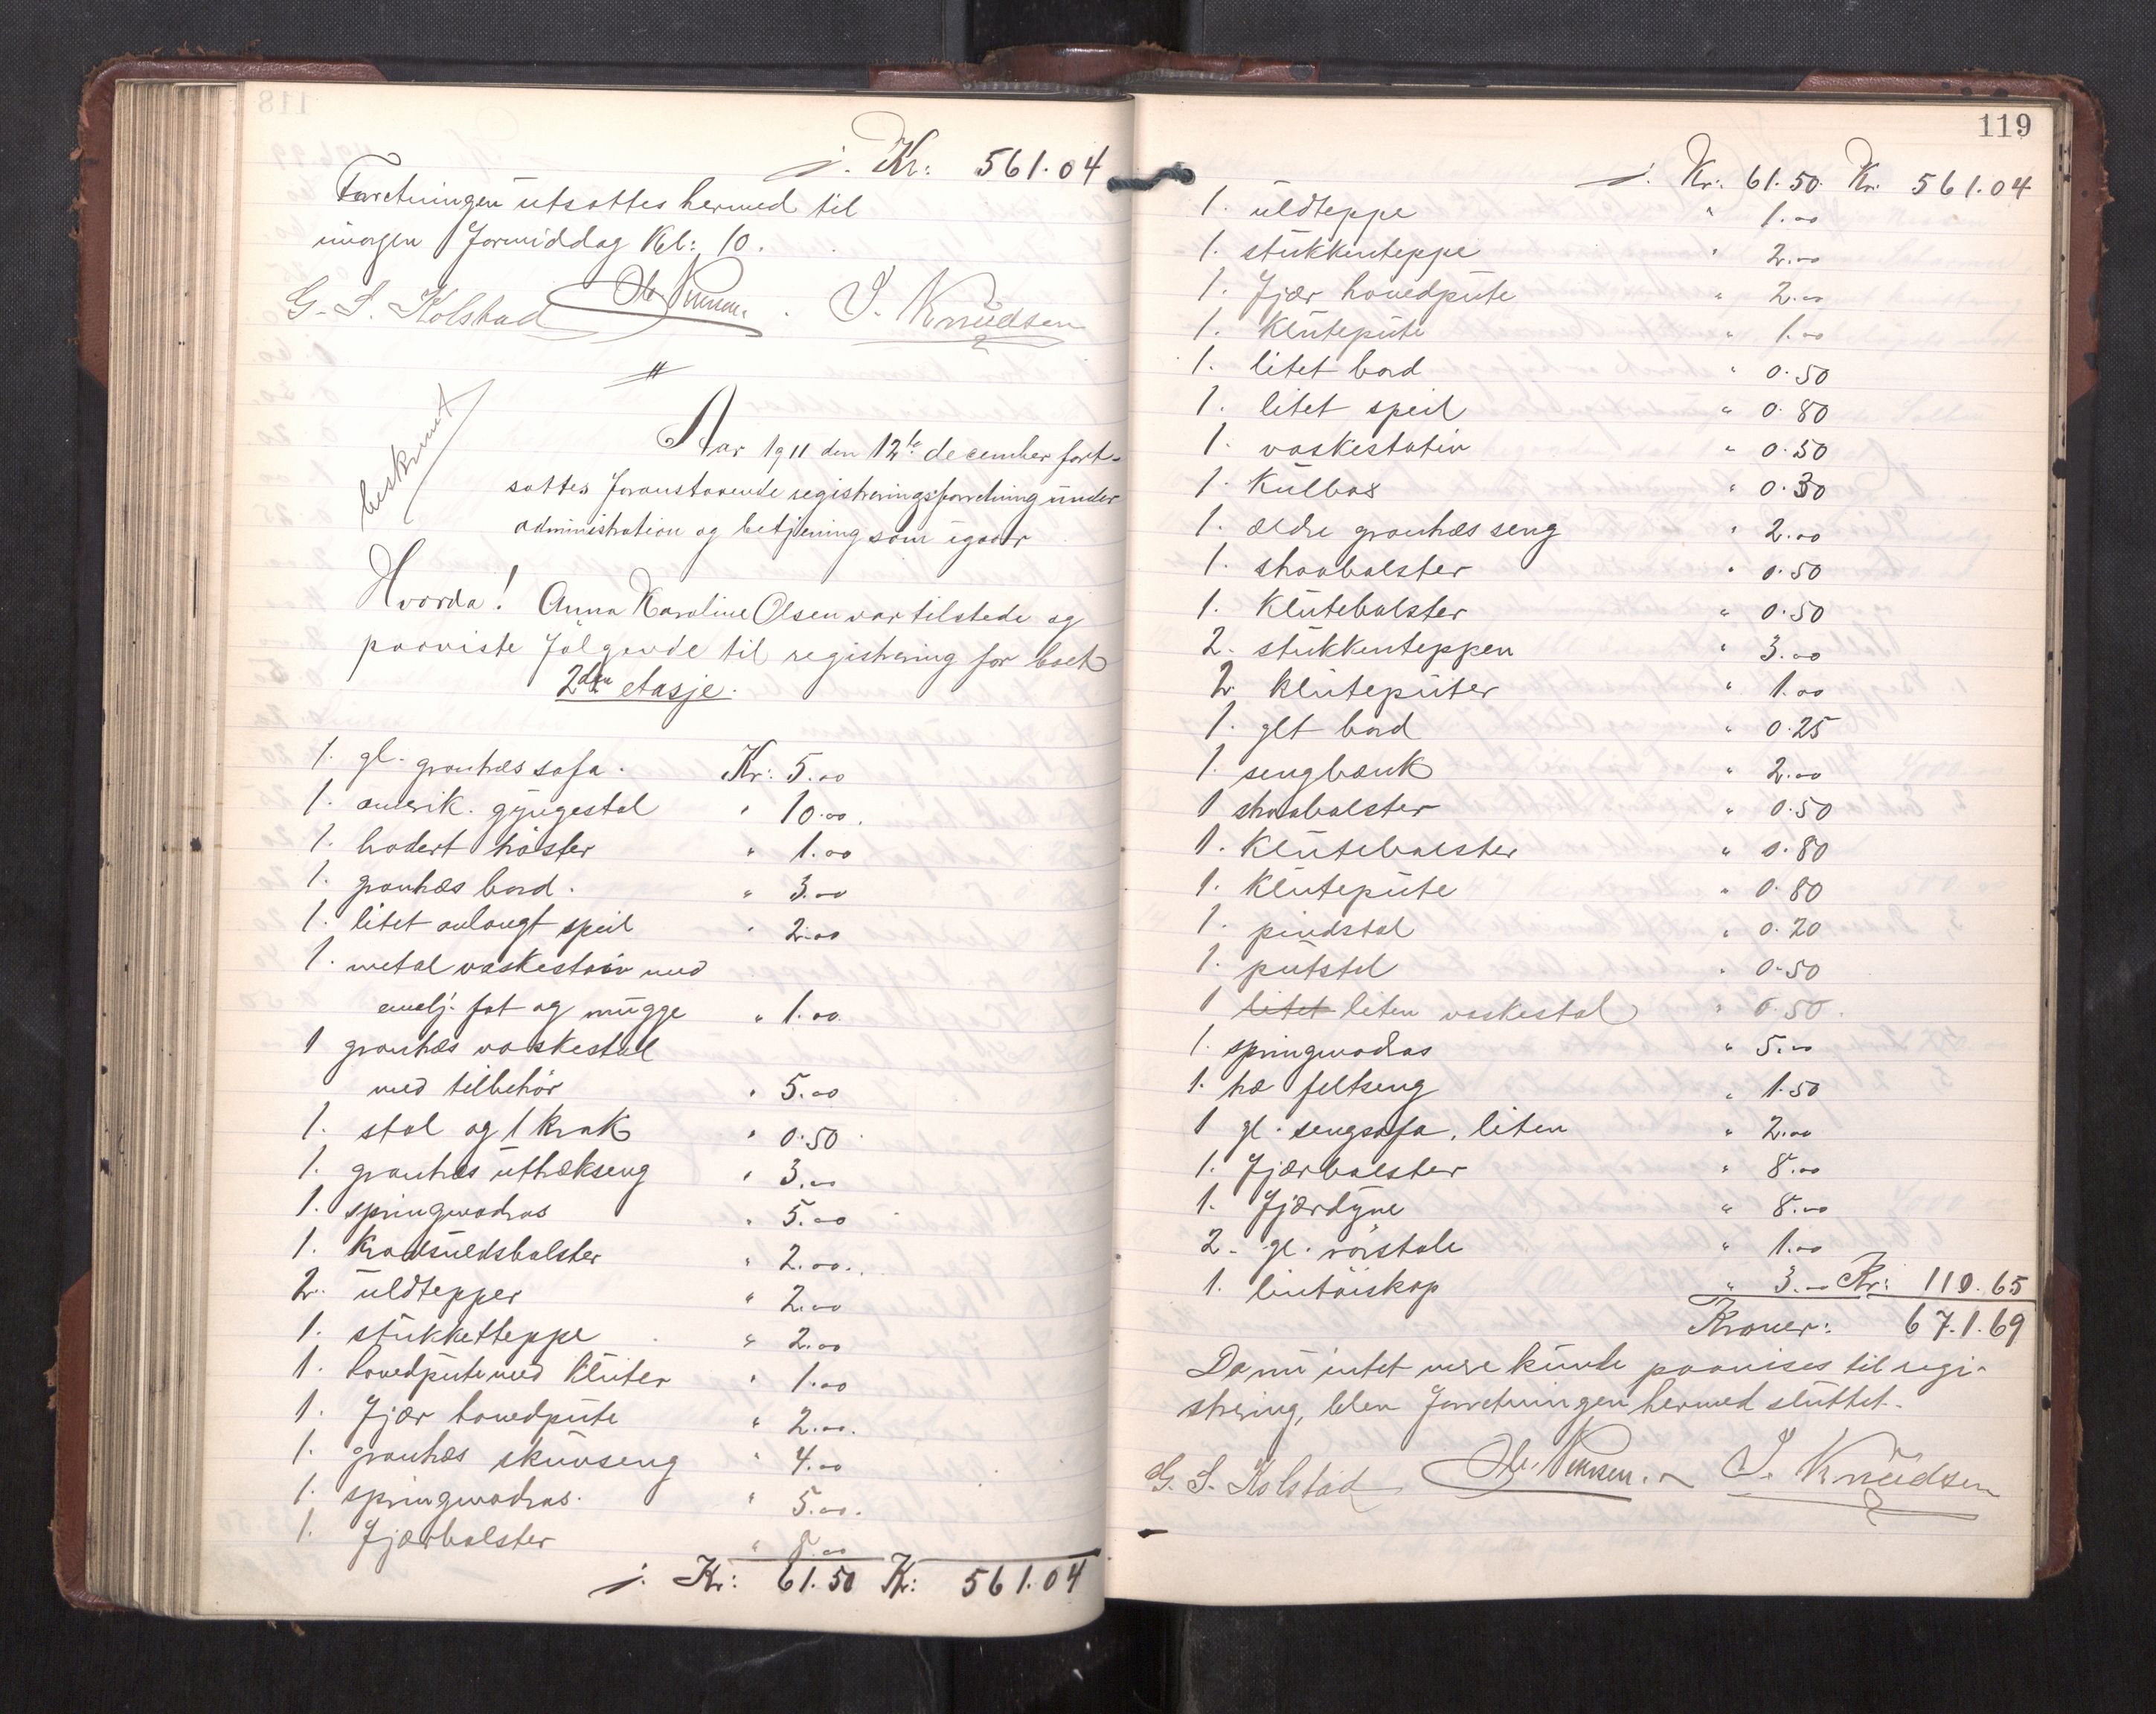 j. Kr: 561.04
Forretningen utsattes hermed til
imorgen formiddag Kl: 10.
G. S. Kolstad J. Knudsen
beskrevet
Aar 1911 den 12te december fort-
sattes foranstaaende registreringsforretning under
administration og betjening som igaar
Hvorda! Anna Karoline Olsen var tilstede og
paaviste følgende til registrering for boet
2den etasje.
1. gl. granhæs sofa. Kr: 5.00
1. amerik. gyngestol " 10.00.
1. hadert hoster " 1.00
1. granhæs bord. " 3.00
1. litet avlangt speil " 2.00
1. metal vaskestativ med
emalj. fat og mugge " 1.00
1 granhæs vaskestol
med tilbehör " 5.00
1. stol og 1 Krak " 0.50
1. granhæs uttrækseng " 3.00
1. springmadras " 5.00
1. Kradsuldsbolster " 2.00.
2. uldtepper " 2.00
1. stukketteppe " 2.00
1. hovedpute med Kluter " 1.00
1. Fjær hovedpute " 2.00.
1. granhæs skuvseng " 4.00
1. springmadras. " 5.00.
1. Fjærbolster " 8.00
j. Kr: 61.50 Kr: 561.04
119
j. Kr: 61.50. Kr. 561.04
1. uldteppe " 1.00
1. stukkenteppe " 2.00
1. Fjær hovedpute " 2.00
1. Klutepute " 1.00
1. litet bord " 0.50
1. litet speil " 0.80
1. vaskestativ " 0.50
1. Kulbas " 0.30
1. ældre granhæs seng " 2.00
1. straabolster " 0.50
1. Klutebolster " 0.50
2. stukkenteppen " 3.00
2. kluteputer " 1.00
1. glt bord " 0.25
1. sengbænk " 2.00
1 straabolster " 0.50
1. Klutebolster " 0.80
1. Klutepute " 0.80
1. pindstol " 0.20
1. putstol " 0.50
1 litet liten vaskestol " 0.50.
1. springmadras " 5.00
1. træ feltseng " 1.50
1 gl. sengsofa, liten " 2.00
1. Fjærbolster " 8.00
1. Fjærdyne " 8.00
2. gl. rörstole " 1.00
1. lintöiskap " 3.00 Kr: 110.65
Kroner: 671.69
Da nu intet mere kunde paavises til regi-
strering, blev forretningen hermed sluttet.
G. S. Kolstad J. Knudsen